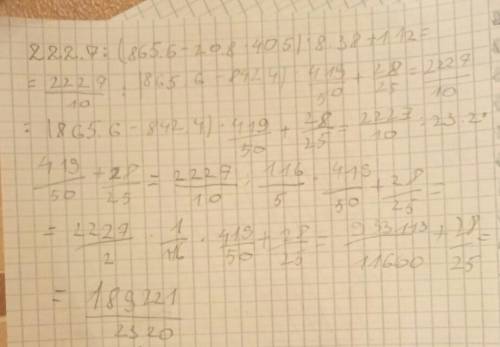 222.7:(865.6-20.8·40.5)·8.38+1.12=
= 2227/10 : (865.6-842.4)·419/50+28/25=2227/10
=(865.6-842.4)·419/50+28/25=2227/10:23.2·
419/50+28/25=2227/10:116/5·419/50+28/25=
=2227/2·1/116·419/50+28/25=933113/11600+28/25=
=189221/2320